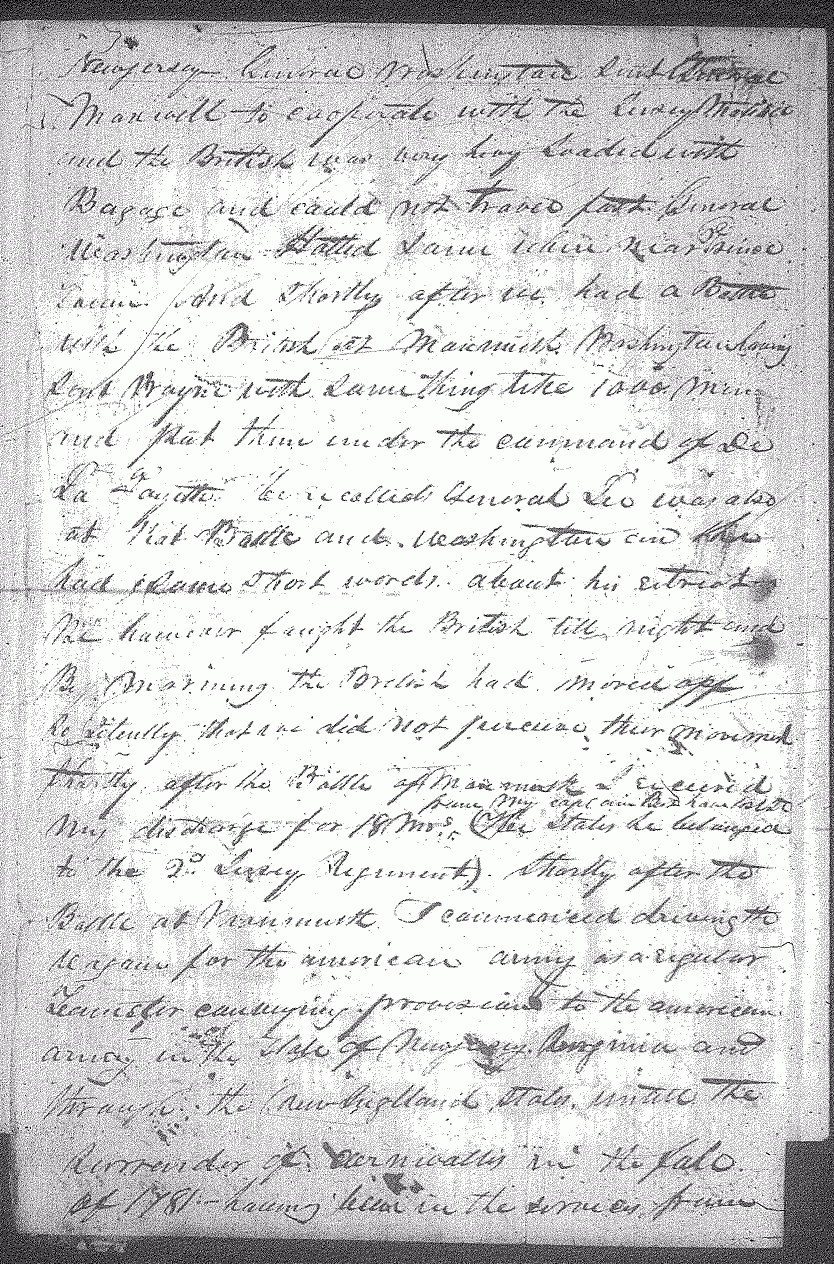 Newjersey General Washington Sent General
Maxwell to cooperate with the Jersey Militia
and the British was very hevy Loaded with
Bagage and could not travel fast General
Washington Halted Some time near Prince
Town And Shortly after we had a Battle
with the British at Monmouth Washington having
Sent Wayne with Something like 1000 Men
and put them under the command of De
La Fayette he recollects General Lee was also
at that Battle and Washington and him
had Some Short words about his retreat
We however faught the British till night and
By morning the British had moved off
So Silently that we did not perceive their movement
Shortly after the Battle of Monmouth I received
from my captain but have lost it
my discharge for 18 Mos. (He States he belonged
to the 2d Jersey Regiment). Shortly after the
Battle at Monmouth I commenced driving the
wagon for the american army as a regular
Teamster conveying provisions to the american
army in the State of Newjersey Virginia and
through the New England States untill the
Surrender of Cornwallis in the fall
of 1781 - having been in the services from